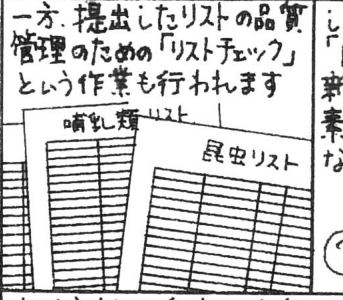 一方、提出したリストの品質
管理のための「リストチェック」
という作業も行われます
哺乳類リスト
昆虫リスト